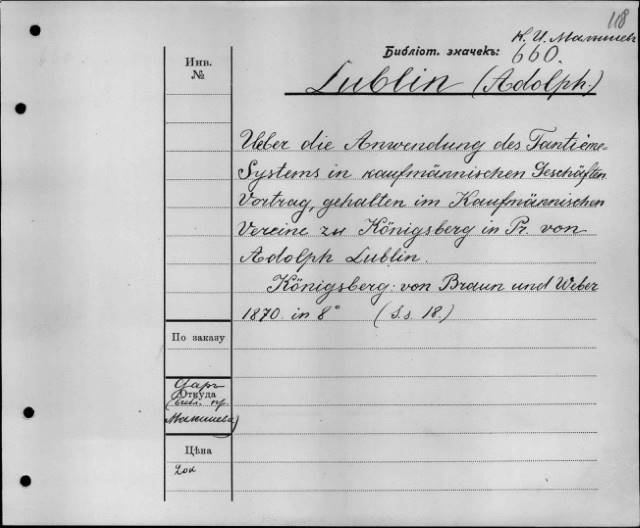 118
К. И. Малышевъ
Библіот. значекъ: 660.
Инв.
№
Lublin (Adolph.)
Ueber die Anwendung des Tantième-
Systems in kaufmännischen Geschäften
Vortrag, gehalten im Kaufmännischen
Vereine zu Königsberg in Pr. von
Adolph Lublin.
Königsberg: von Braun und Weber
1870. in 8° (S.s. 18.)
По заказу
Даръ
Откуда
Малышева)
Цѣна